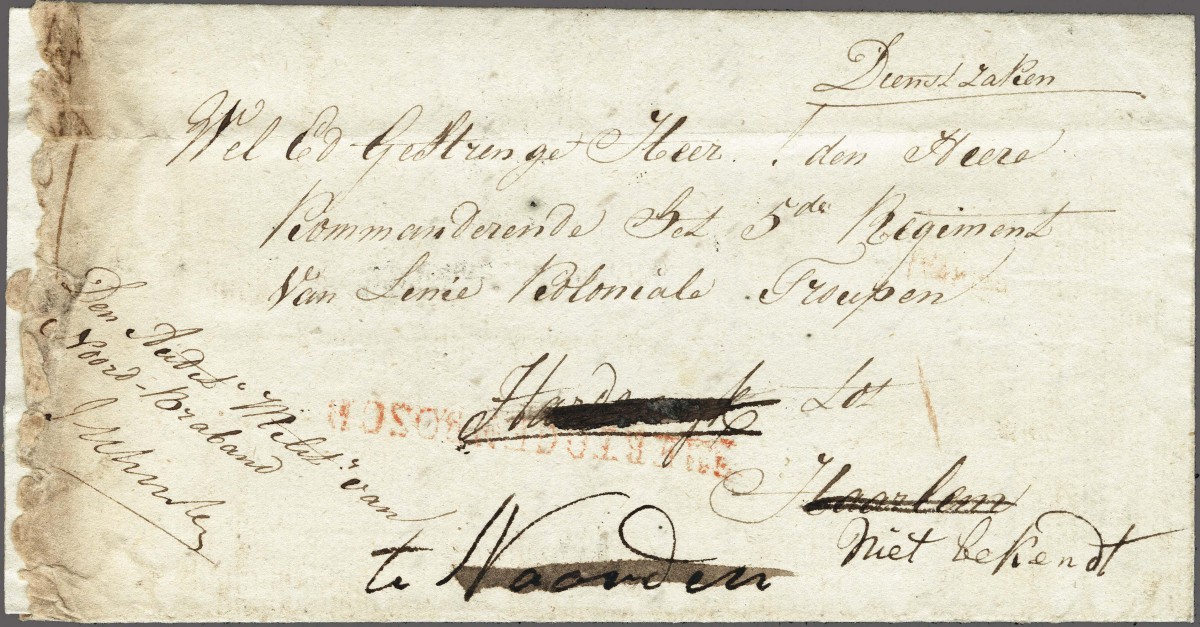 Dienst zaken
Wel Ed Gestrenge Heer / den Heere
Kommanderende het 5de Regiment
Van Linie Koloniale Troupen
Harderwyk tot
Haarlem
niet bekendt
te Naarden
Den Audr Milit.r van
Noord-Braband
HERTOGENBOSCH